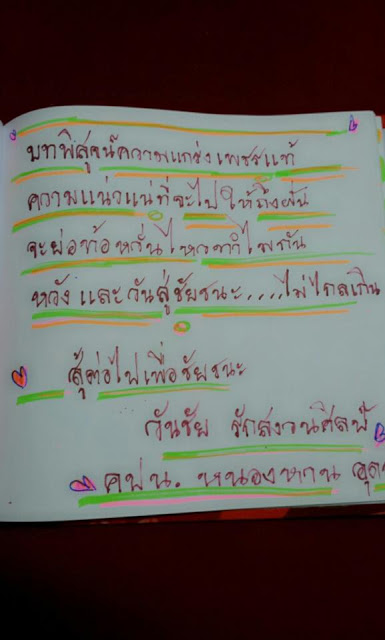 บทพิสูจน์ความแกร่งเพชรแท้
ความแน่วแน่ที่จะไปให้ถึงฝัน
จะย่อท้อหวั่นไหวทำไมกัน
หวัง และ วันสู่ชัยชนะ....ไม่ไกลเกิน
สู้ต่อไปเพื่อชัยชนะ
วันชัย รักสงวนศิลป์
คฟน. หนองหาน อุด